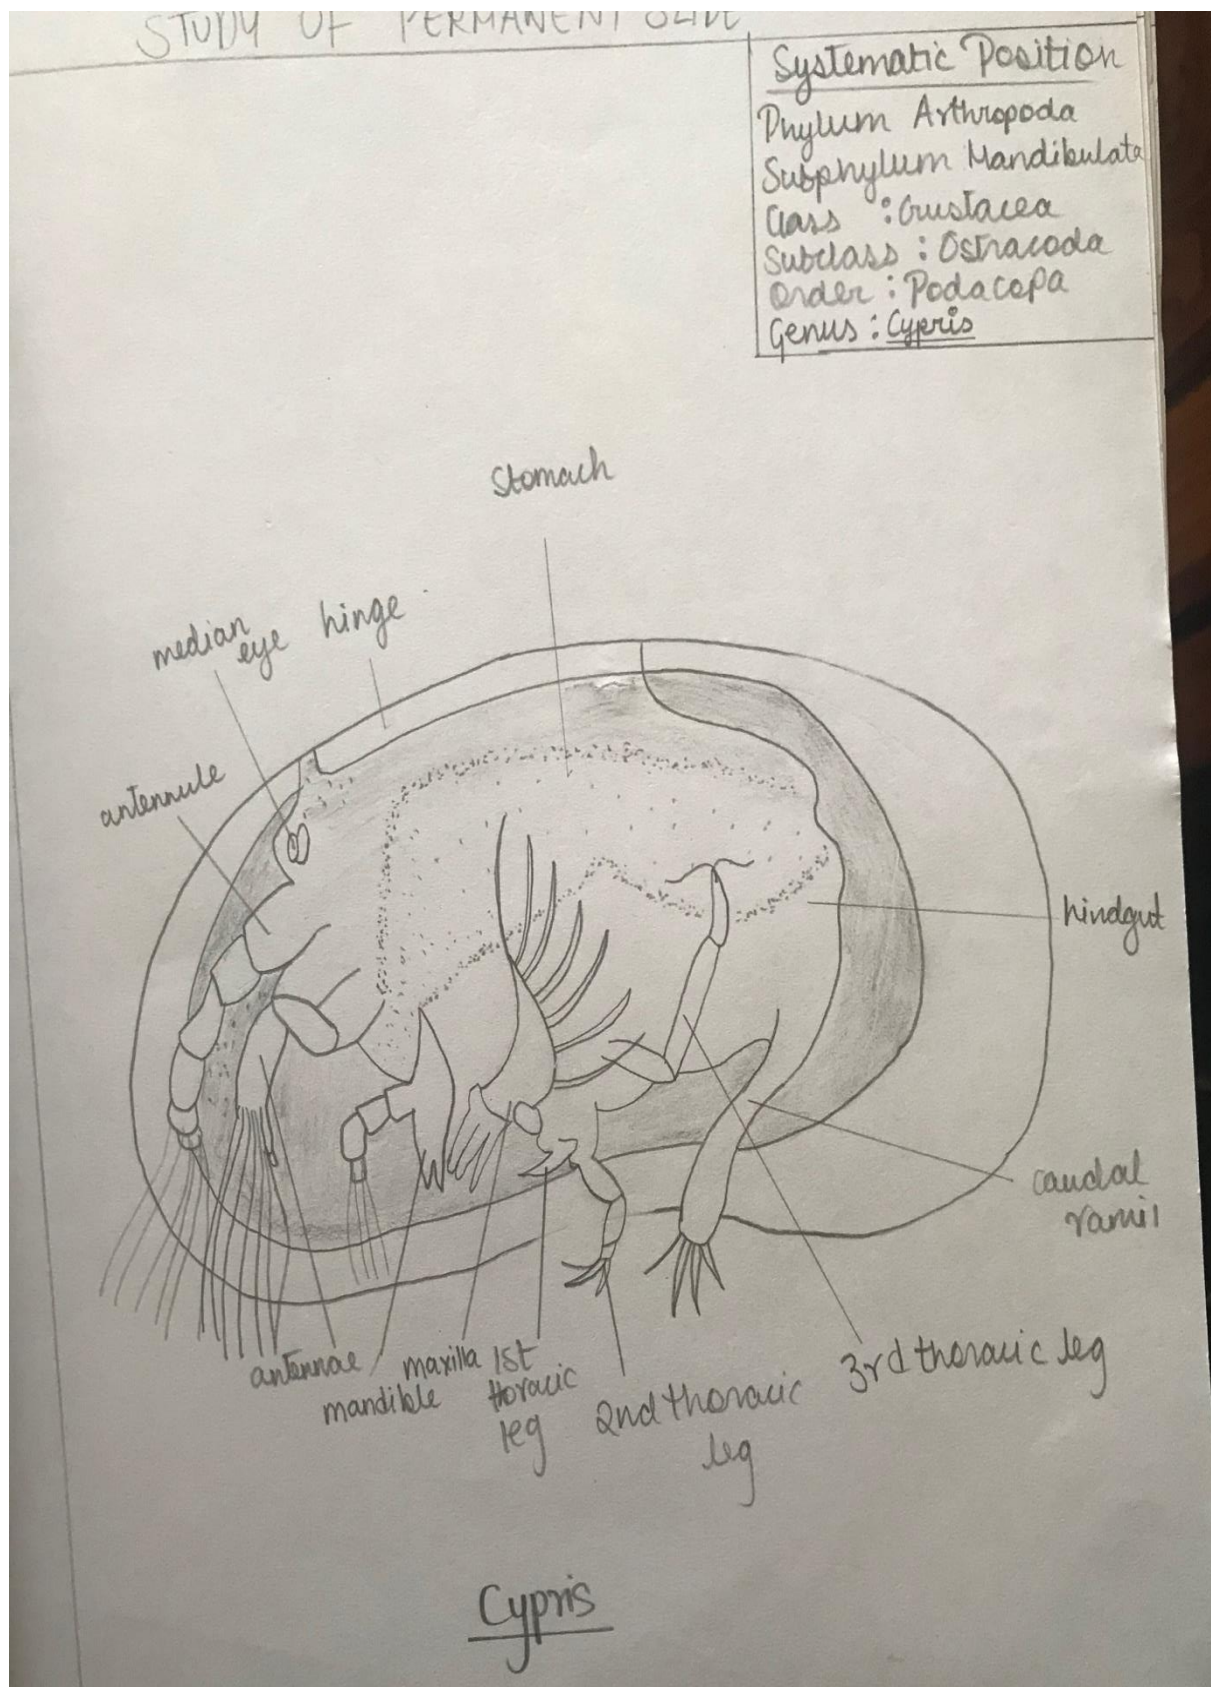 STUDY OF PERMANENT SLIDE
Systematic Position
Phylum Arthropoda
Subphylum Mandibulata
Class : Crustacea
Subclass : Ostracoda
Order : Podacopa
Genus : Cypris
Stomach
median
eye
hinge
antennule
hindgut
caudal
ramii
antennae
mandible
maxilla
1st
thoracic
leg
2nd thoracic
leg
3rd thoracic leg
Cypris